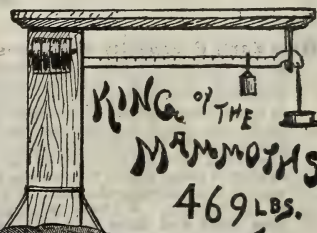 KING of THE
MAMMOTHS
469 LBS.